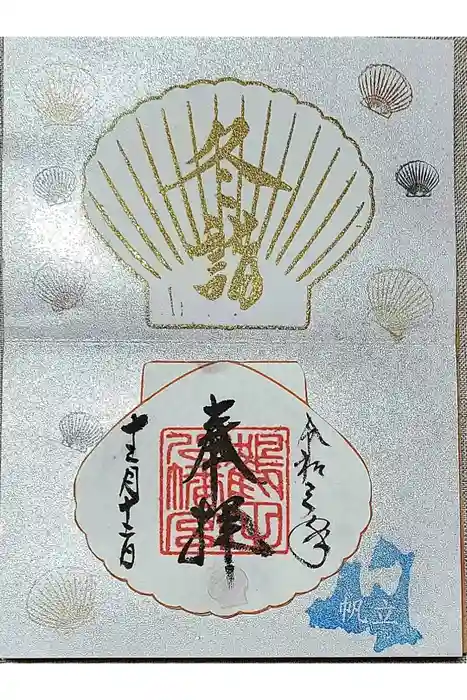 冬詣
令和三年
奉拝
八幡宮
十二月十二日
帆立